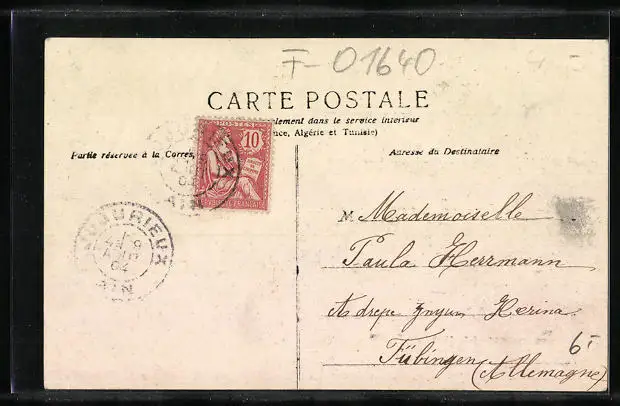 F-01640
CARTE POSTALE
lement dans le service interieur
nce, Algérie et Tunisie)
Partie réservée à la Corres
Adresse du Destinataire
POSTES
10
RÉPUBLIQUE FRANÇAISE
AIN
AIN
M Mademoiselle
Paula Herrmann
Herina
Tübingen (Allemagne)
6.-